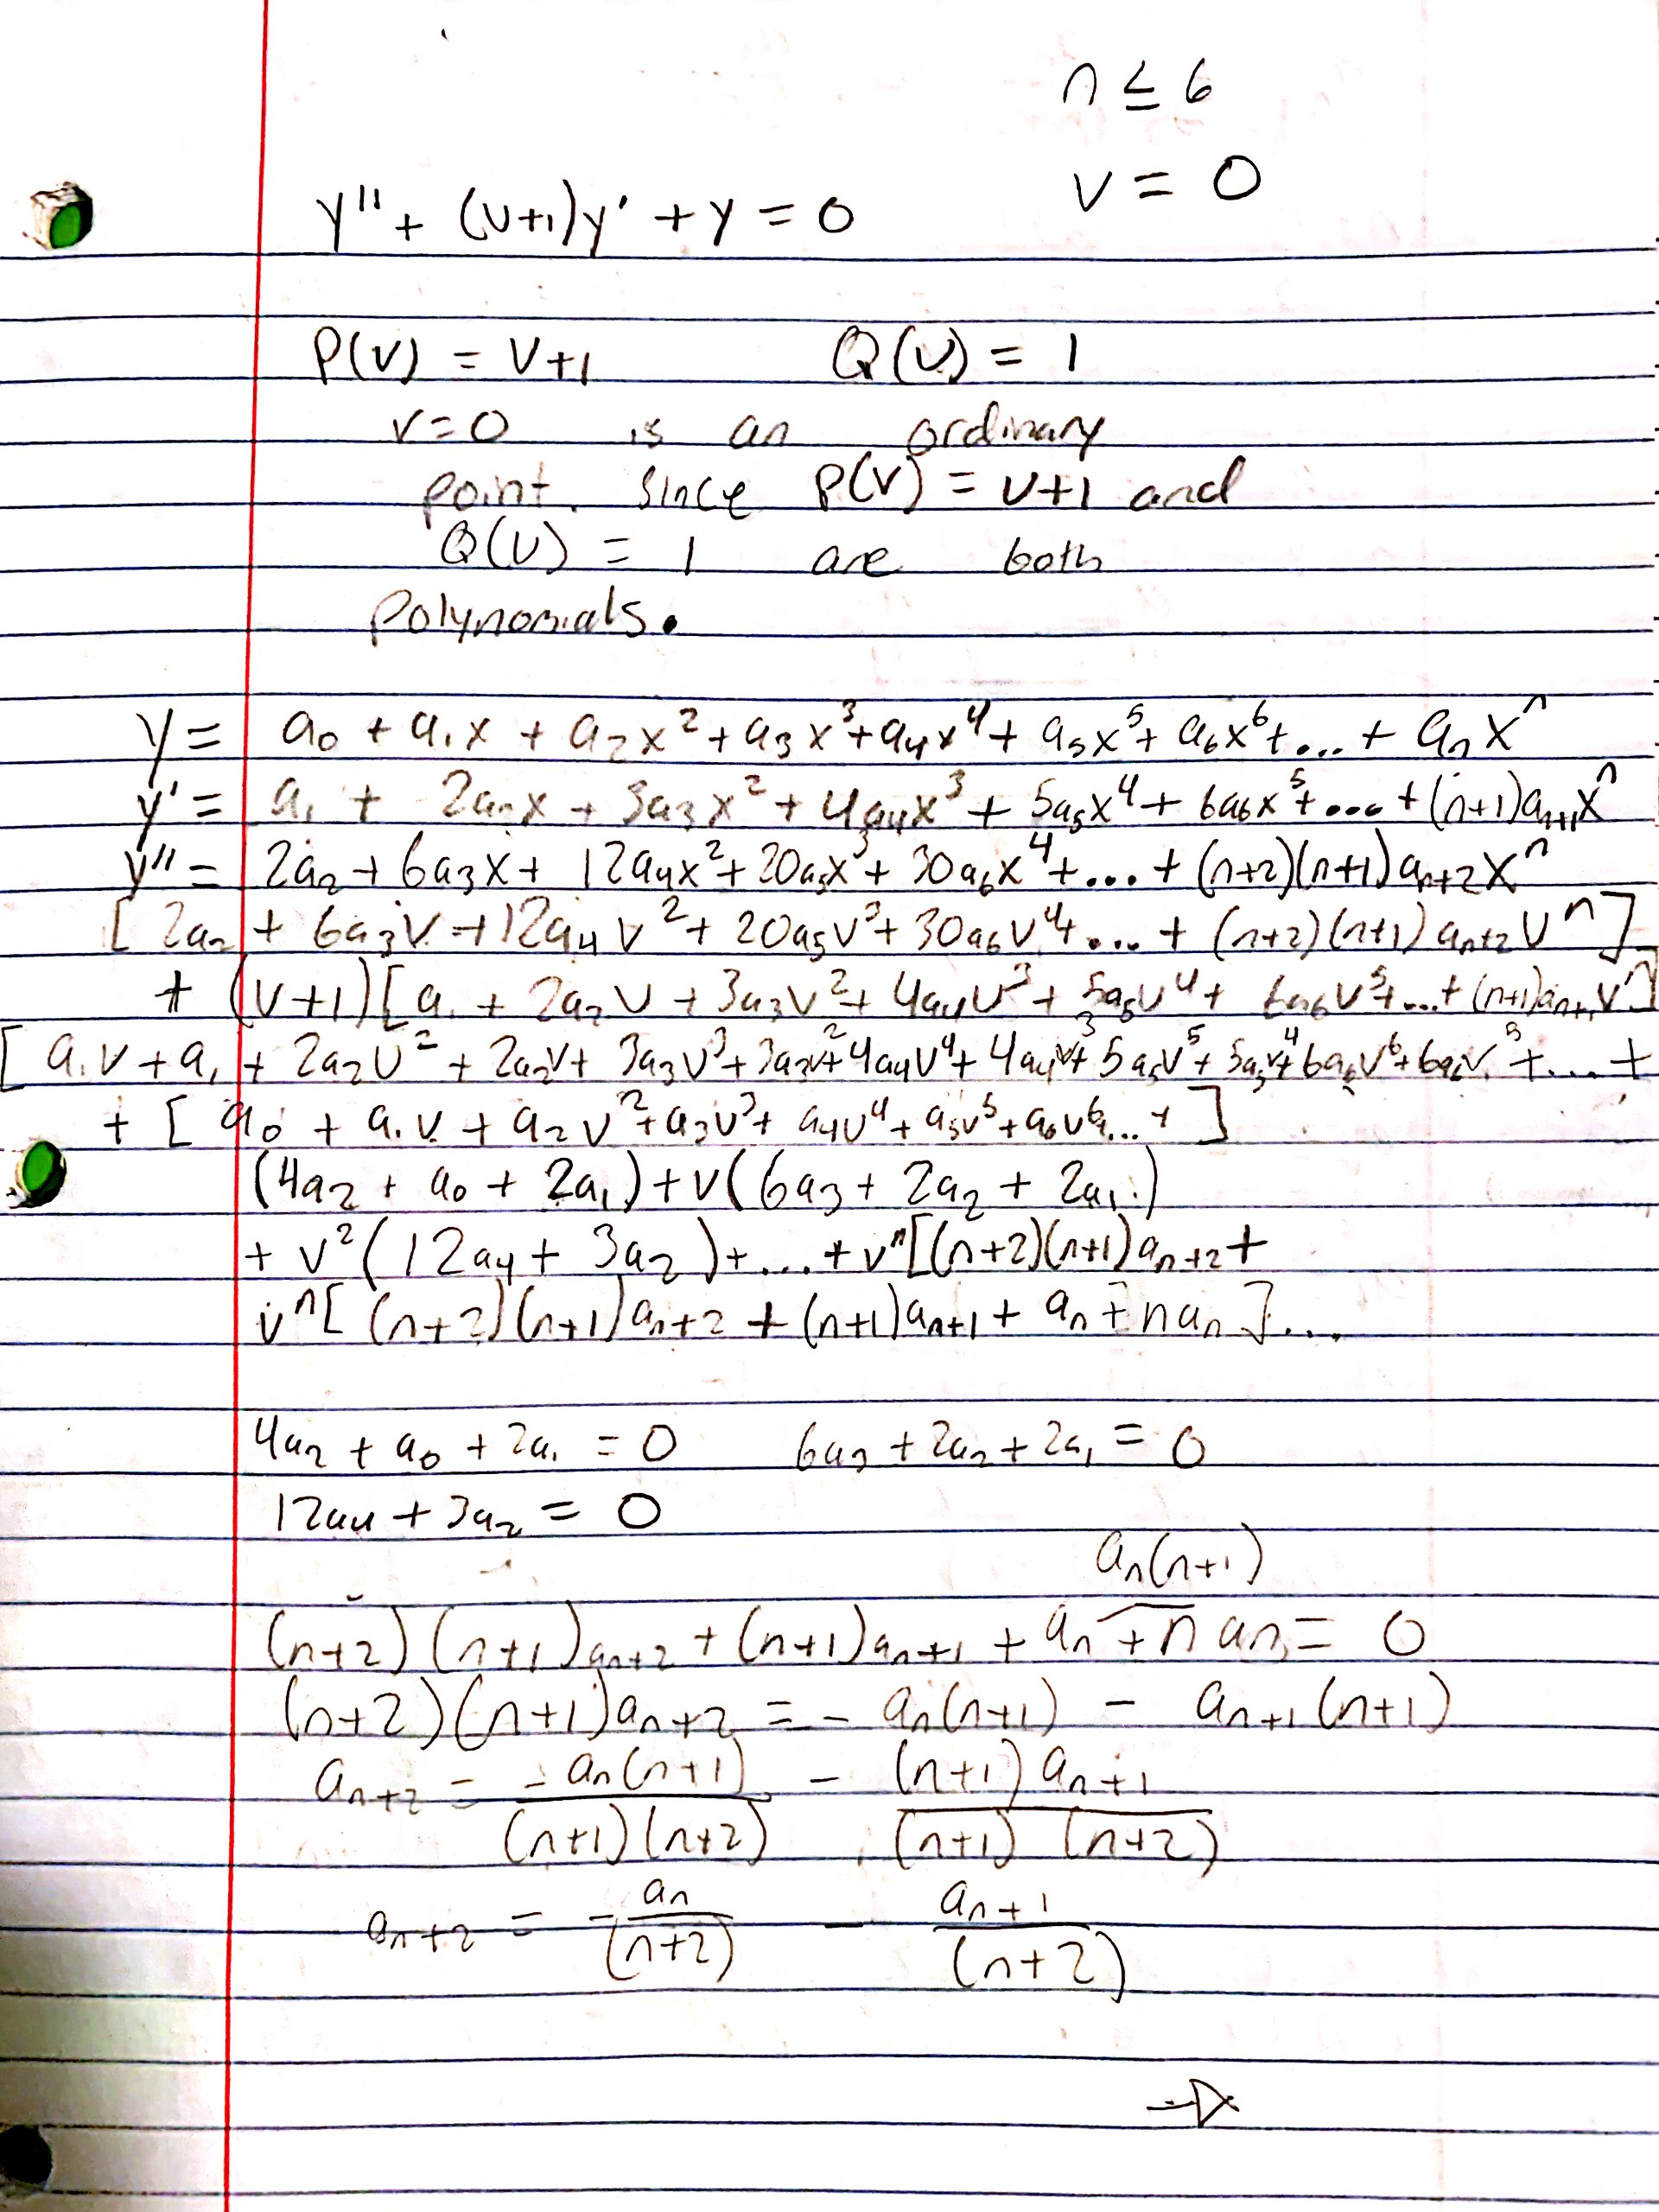 n ≤ 6
v = 0
y'' + (v+1)y' + y = 0
P(v) = v+1 Q(v) = 1
v=0 is an ordinary
point. since P(v) = v+1 and
Q(v) = 1 are both
polynomials.
y = a₀ + a₁x + a₂x² + a₃x³ + a₄x⁴ + a₅x⁵ + a₆x⁶ + ... + aₙxⁿ
y' = a₁ + 2a₂x + 3a₃x² + 4a₄x³ + 5a₅x⁴ + 6a₆x⁵ + ... + (n+1)aₙ₊₁xⁿ
y'' = 2a₂ + 6a₃x + 12a₄x² + 20a₅x³ + 30a₆x⁴ + ... + (n+2)(n+1)aₙ₊₂xⁿ
[2a₂ + 6a₃v + 12a₄v² + 20a₅v³ + 30a₆v⁴ + ... + (n+2)(n+1)aₙ₊₂vⁿ]
+ (v+1)[a₁ + 2a₂v + 3a₃v² + 4a₄v³ + 5a₅v⁴ + 6a₆v⁵ + ... + (n+1)aₙ₊₁vⁿ]
[a₁v + a₁ + 2a₂v² + 2a₂v + 3a₃v³ + 3a₃v² + 4a₄v⁴ + 4a₄v³ + 5a₅v⁵ + 5a₅v⁴ + 6a₆v⁶ + 6a₆v⁵ + ... +
+ [a₀ + a₁v + a₂v² + a₃v³ + a₄v⁴ + a₅v⁵ + a₆v⁶ ... + ]
(4a₂ + a₀ + 2a₁) + v(6a₃ + 2a₂ + 2a₁)
+ v²(12a₄ + 3a₂) + ... + vⁿ[(n+2)(n+1)aₙ₊₂ +
vⁿ[(n+2)(n+1)aₙ₊₂ + (n+1)aₙ₊₁ + aₙ + naₙ]...
4a₂ + a₀ + 2a₁ = 0 6a₃ + 2a₂ + 2a₁ = 0
12a₄ + 3a₂ = 0
aₙ(n+1)
(n+2)(n+1)aₙ₊₂ + (n+1)aₙ₊₁ + aₙ + naₙ = 0
(n+2)(n+1)aₙ₊₂ = - aₙ(n+1) - aₙ₊₁(n+1)
aₙ₊₂ = -aₙ(n+1)/(n+1)(n+2) - (n+1)aₙ₊₁/(n+1)(n+2)
aₙ₊₂ = -aₙ/(n+2) - aₙ₊₁/(n+2)